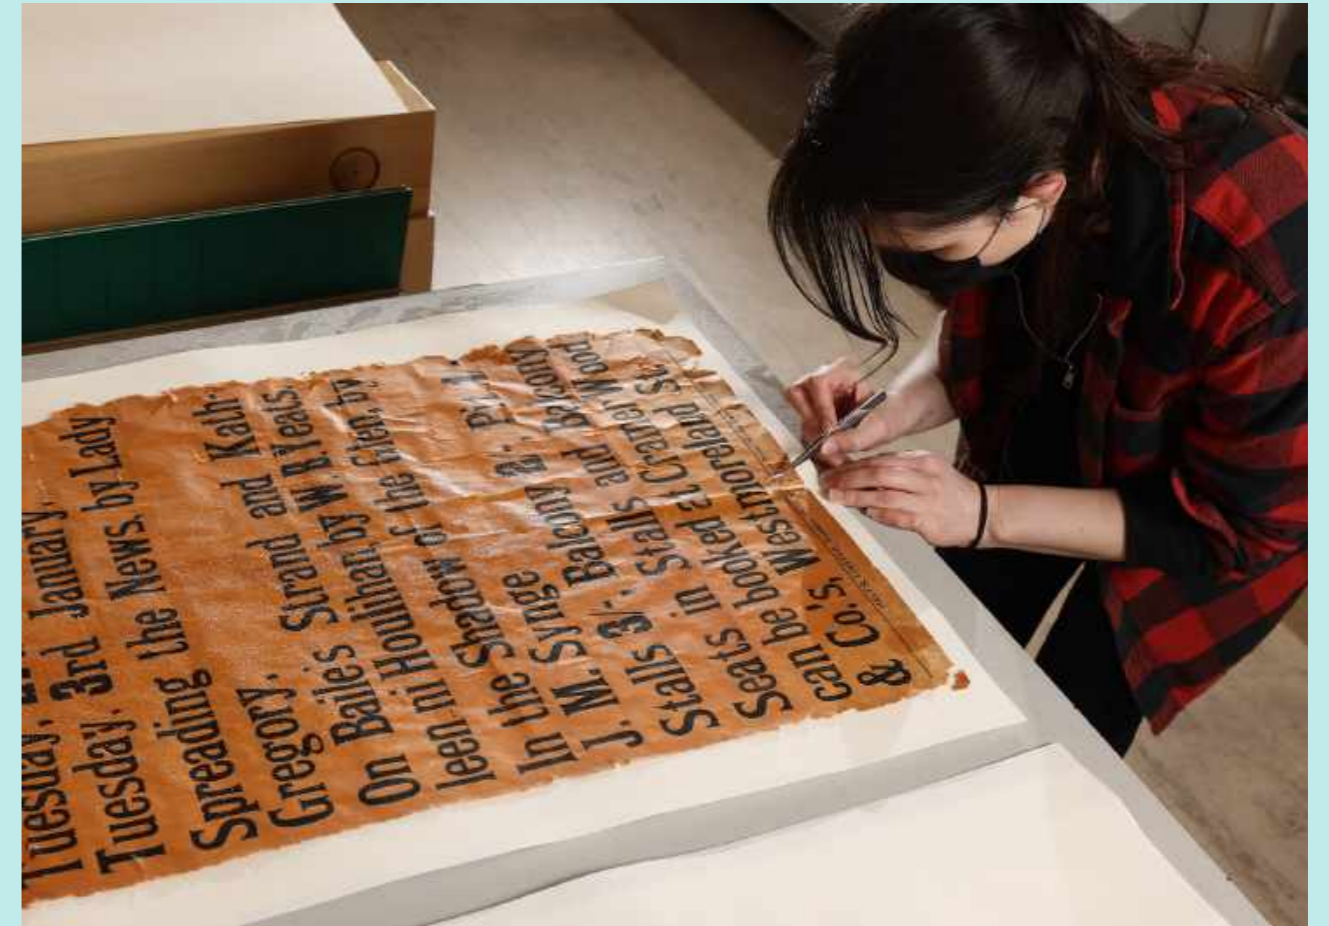 Tuesday,
Tuesday, 3rd January,
Spreading the News, by Lady
Gregory.
On Baile's Strand and Kath-
leen ni Houlihan, by W. B. Yeats.
In the Shadow of the Glen, by
J. M. Synge
Stalls 3/-. Balcony 2/-. Pit
Seats in Stalls and Balcony
can be booked at Cramer Wood
& Co.'s, Westmoreland St.